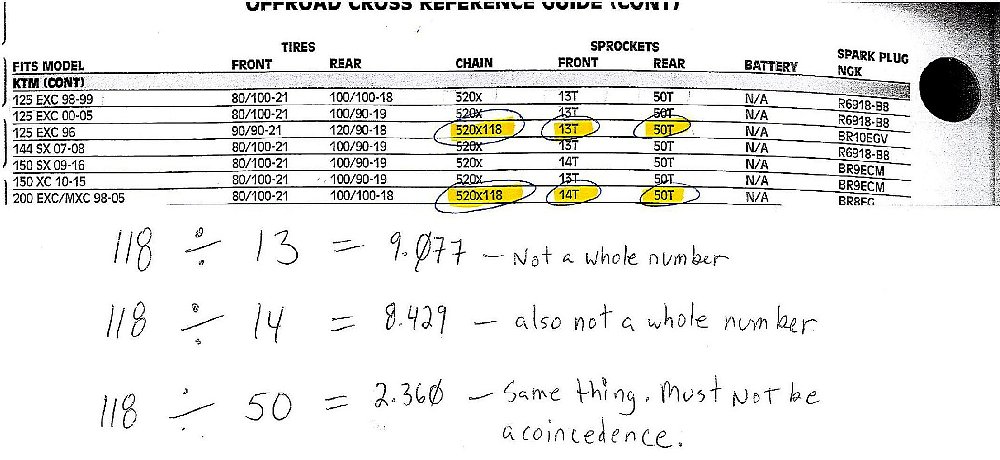 OFFROAD CROSS REFERENCE GUIDE (CONT)
TIRES SPROCKETS
FITS MODEL FRONT REAR CHAIN FRONT REAR BATTERY SPARK PLUG NGK
KTM (CONT)
125 EXC 98-99 80/100-21 100/100-18 520x 13T 50T N/A R6918-B8
125 EXC 00-05 80/100-21 100/90-19 520x 13T 50T N/A R6918-B8
125 EXC 96 90/90-21 120/90-18 520x118 13T 50T N/A BR10EGV
144 SX 07-08 80/100-21 100/90-19 520x 13T 50T N/A R6918-B8
150 SX 09-16 80/100-21 100/90-19 520x 14T 50T N/A BR9ECM
150 XC 10-15 80/100-21 100/90-19 520x 13T 50T N/A BR9ECM
200 EXC/MXC 98-05 80/100-21 100/100-18 520x118 14T 50T N/A BR8EG
118 ÷ 13 = 9.077 - Not a whole number
118 ÷ 14 = 8.429 - also not a whole number
118 ÷ 50 = 2.360 - Same thing. Must Not be
a coincedence.